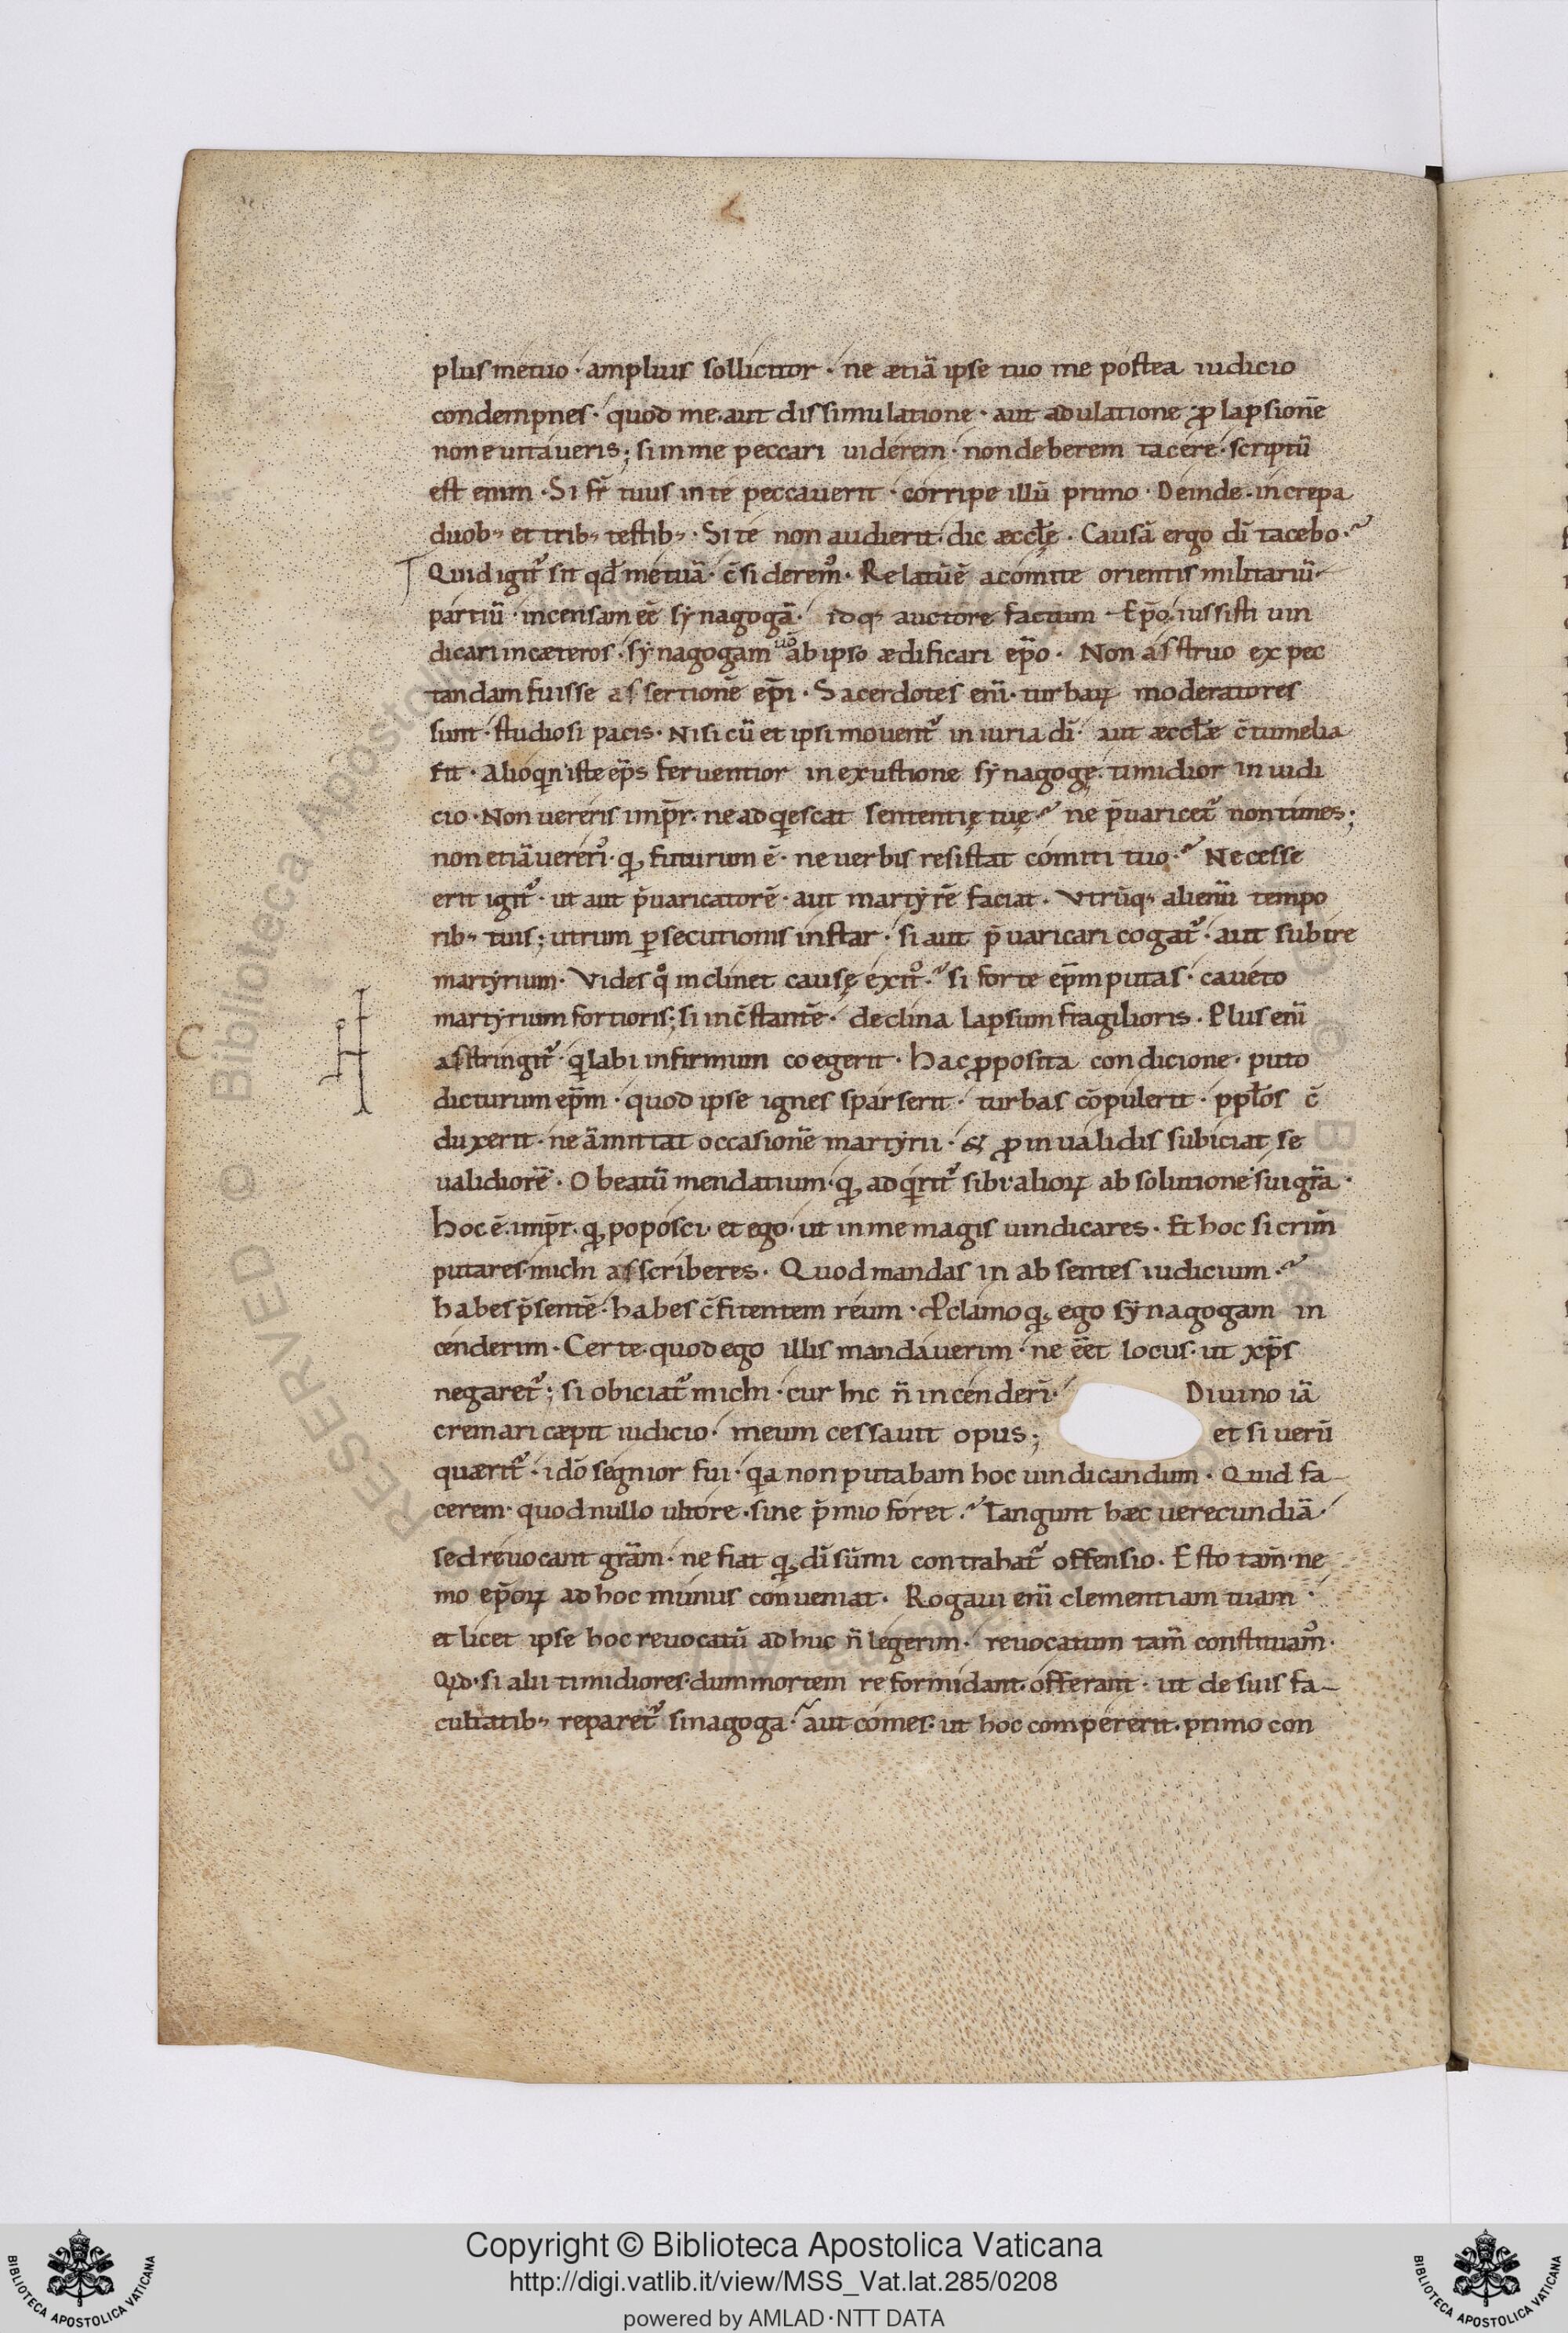 plus metuo · amplius sollicitor · ne ætiā ipse tuo me postea iudicio
condempnes · quod me aut dissimulatione · aut adulatione ꝓ lapsionē
non euitaueris ; si in me peccari uiderem · non deberem tacere · scriptū
est enim · Si fr̄ tuus in te peccauerit · corripe illū primo · Deinde · increpa
duob; et trib; testib; · Si te non audierit · dic æccłę · Causā ergo dī tacebo ·
Quid igit᷒ sit qđ metuā · c̄siderem᷒ · Relatū ē a comite orientis militariū
partiū · incensam eē synagogā · idq; auctore factum · Ep̄o · iussisti uin
dicari in cæteros · synagogam uō ab ipso ædificari ep̄o · Non astruo expec
tandam fuisse assertionē ep̄i · Sacerdotes enī · turbaꝝ moderatores
sunt · studiosi pacis · Nisi cū et ipsi mouent᷒ iniuria dī · aut æccłæ c̄tumelia
fit · Alioqn iste ep̄s feruentior in exustione synagogę · timidior in iudi
cio · Non uereris imp̄r · ne adqescat sententię tuę · ne p̄uaricet᷒ non times ;
non etiā uereri᷒ · qđ futurum ē · ne uerbis resistat comiti tuo · Necesse
erit igit᷒ · ut aut p̄uaricatorē · aut martyrē faciat · Vtrūq; alienū tempo
rib; tuis ; utrum ꝑsecutionis instar · si aut p̄uaricari cogat᷒ · aut subire
martyrium · Vides qͦ inclinet causę exit᷒ · si forte ep̄m putas · caueto
martyrium fortioris ; si inc̄stantē · declina lapsum fragilioris · Plus enī
astringit᷒ · q labi infirmum coegerit · Hac ꝓposita condicione · puto
dicturum ep̄m · quod ipse ignes sparserit · turbas cōpulerit · ppłos c̄
duxerit · ne āmittat occasionē martyrii · & ꝓ inualidis subiciat se
ualidiorē · O beatū mendatium · qđ adqrit᷒ sibi aliorꝝ absolutione sui gr̄a ·
Hoc ē · imp̄r · qđ poposci · et ego · ut in me magis uindicares · Et hoc si crim̄
putares michi asscriberes · Quod mandas in absentes iudicium ·
habes p̄sentē · habes c̄fitentem reum · Ꝓclamo qđ ego synagogam in
cenderim · Certe quod ego illis mandauerim · ne eēt locus · ut xp̄s
negaret᷒ ; si obiciat᷒ michi · cur hic n̄ incenderī · Diuino iā
cremari cæpit iudicio · meum cessauit opus ; et si uerū
quærit᷒ · idō segnior fui · qa non putabam hoc uindicandum · Quid fa-
cerem · quod nullo ultore · sine p̄mio foret · Tangunt hæc uerecundiā ·
sed reuocant gr̄am · ne fiat qđ dī sūmi contrahat᷒ offensio · Esto tam̄ · ne
mo ep̄orꝝ ad hoc munus conueniat · Rogaui enī clementiam tuam ·
et licet ipse hoc reuocatū adhuc n̄ legerim · reuocatum tam̄ constituam᷒ ·
Qid · si alii timidiores · dum mortem reformidant · offerant · ut de suis fa-
cultatib; reparet᷒ sinagoga · aut comes · ut hoc compererit · primo con
Copyright © Biblioteca Apostolica Vaticana
http://digi.vatlib.it/view/MSS_Vat.lat.285/0208
powered by AMLAD·NTT DATA
BIBLIOTECA APOSTOLICA VATICANA
BIBLIOTECA APOSTOLICA VATICANA